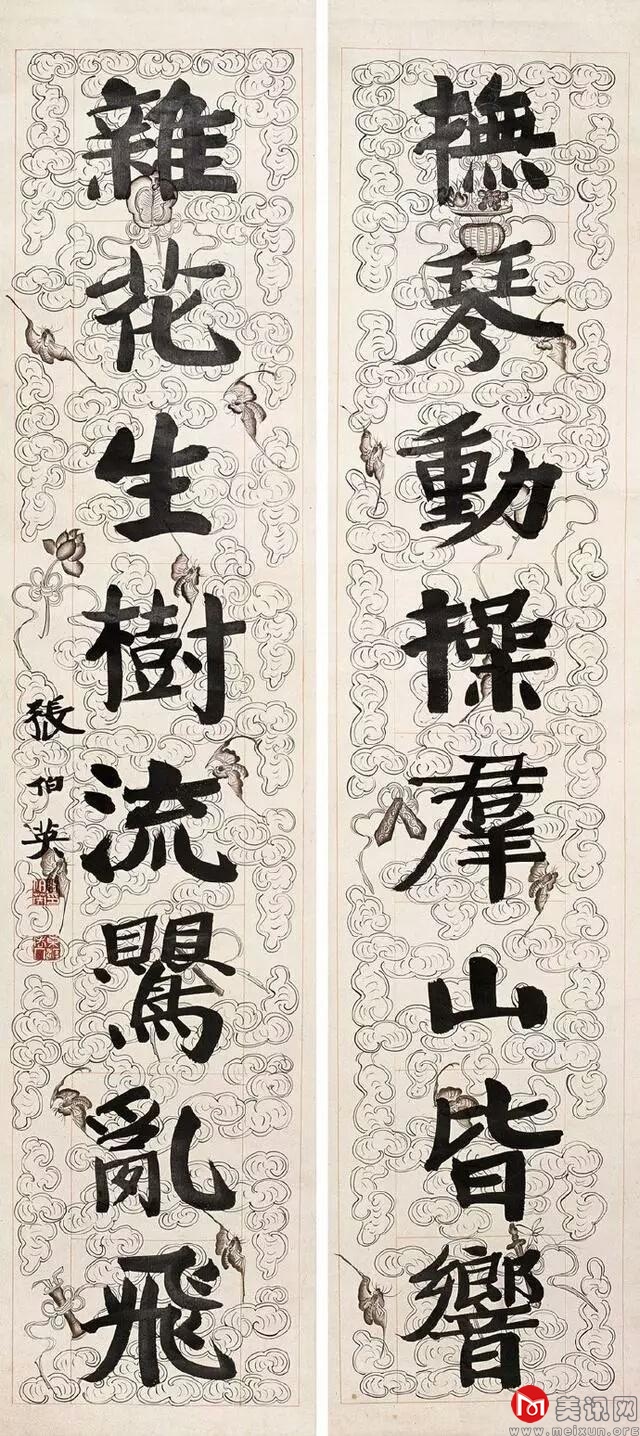 撫琴動操羣山皆響
雜花生樹流鶯亂飛
張伯英
美讯网
www.meixun.org